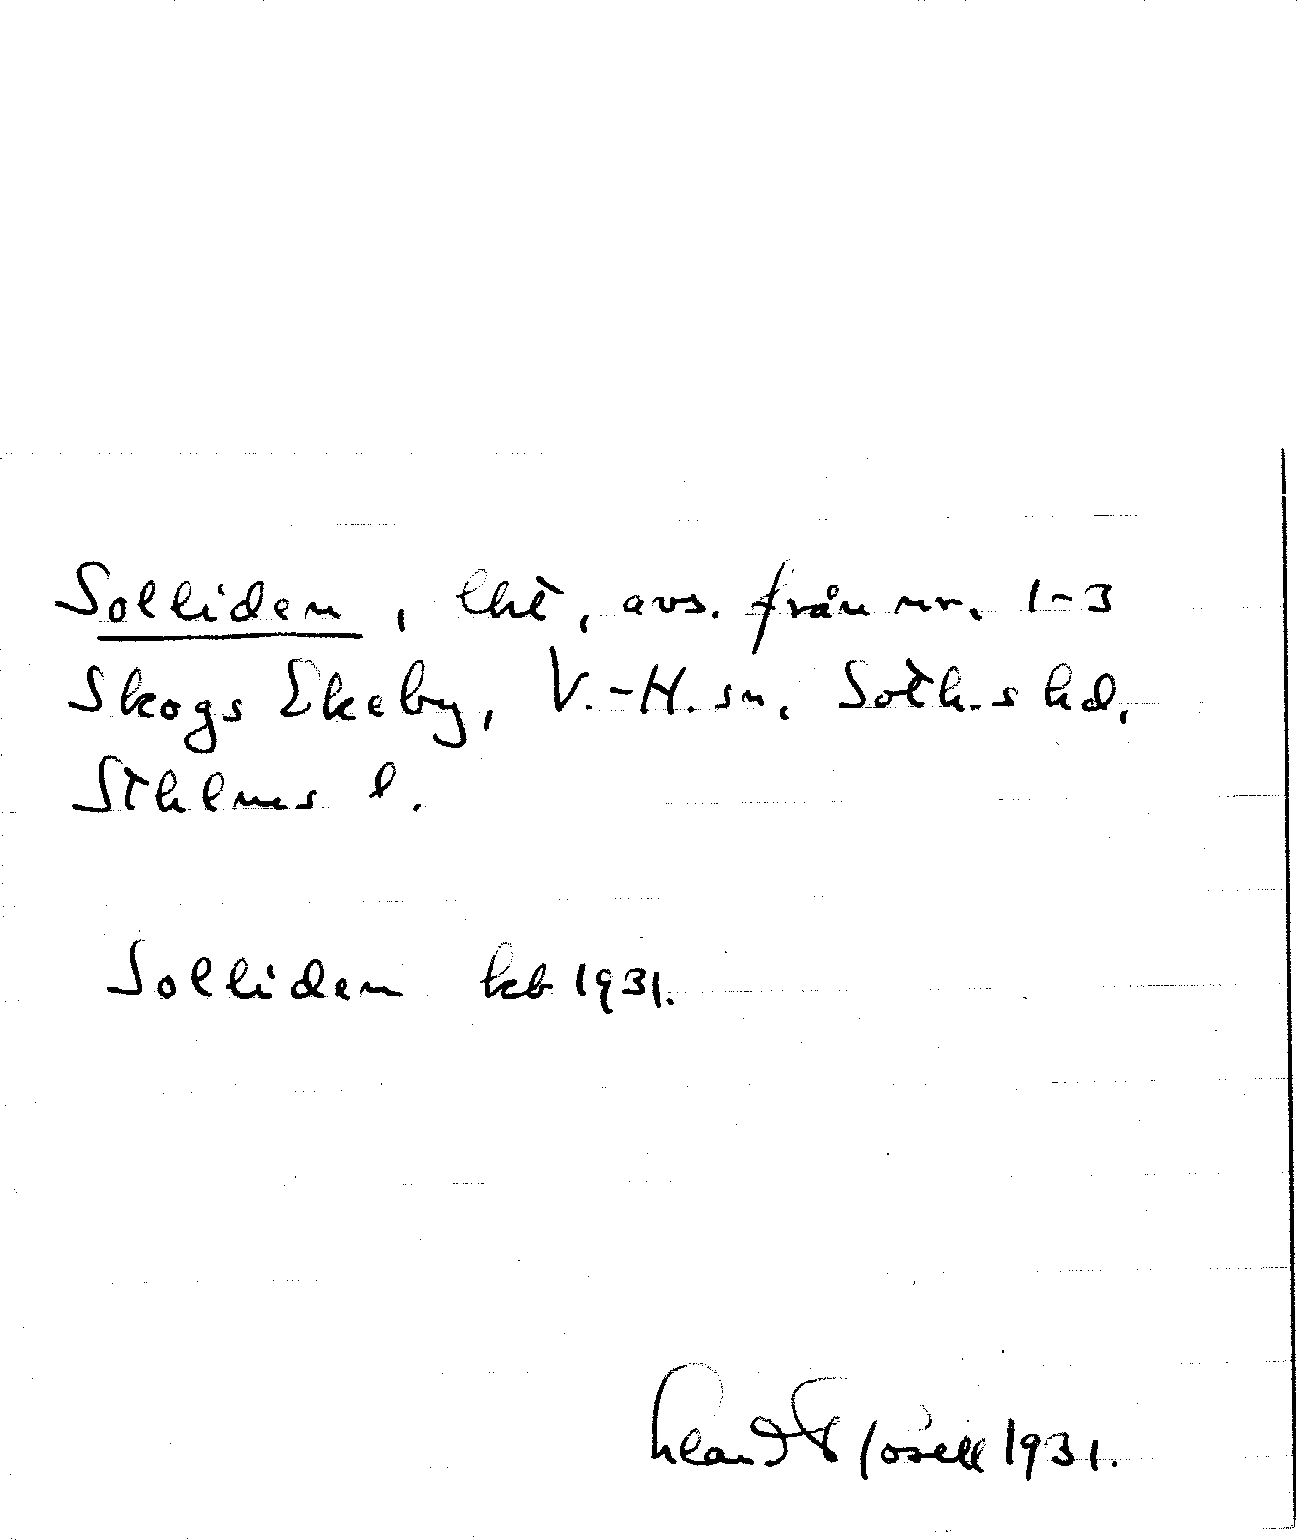 Solliden, lht, avs. från nr. 1-3
Skogs Ekeby, V.-H. sn, Soth.s hd,
Sthlms l.
Solliden kb 1931.
1931.